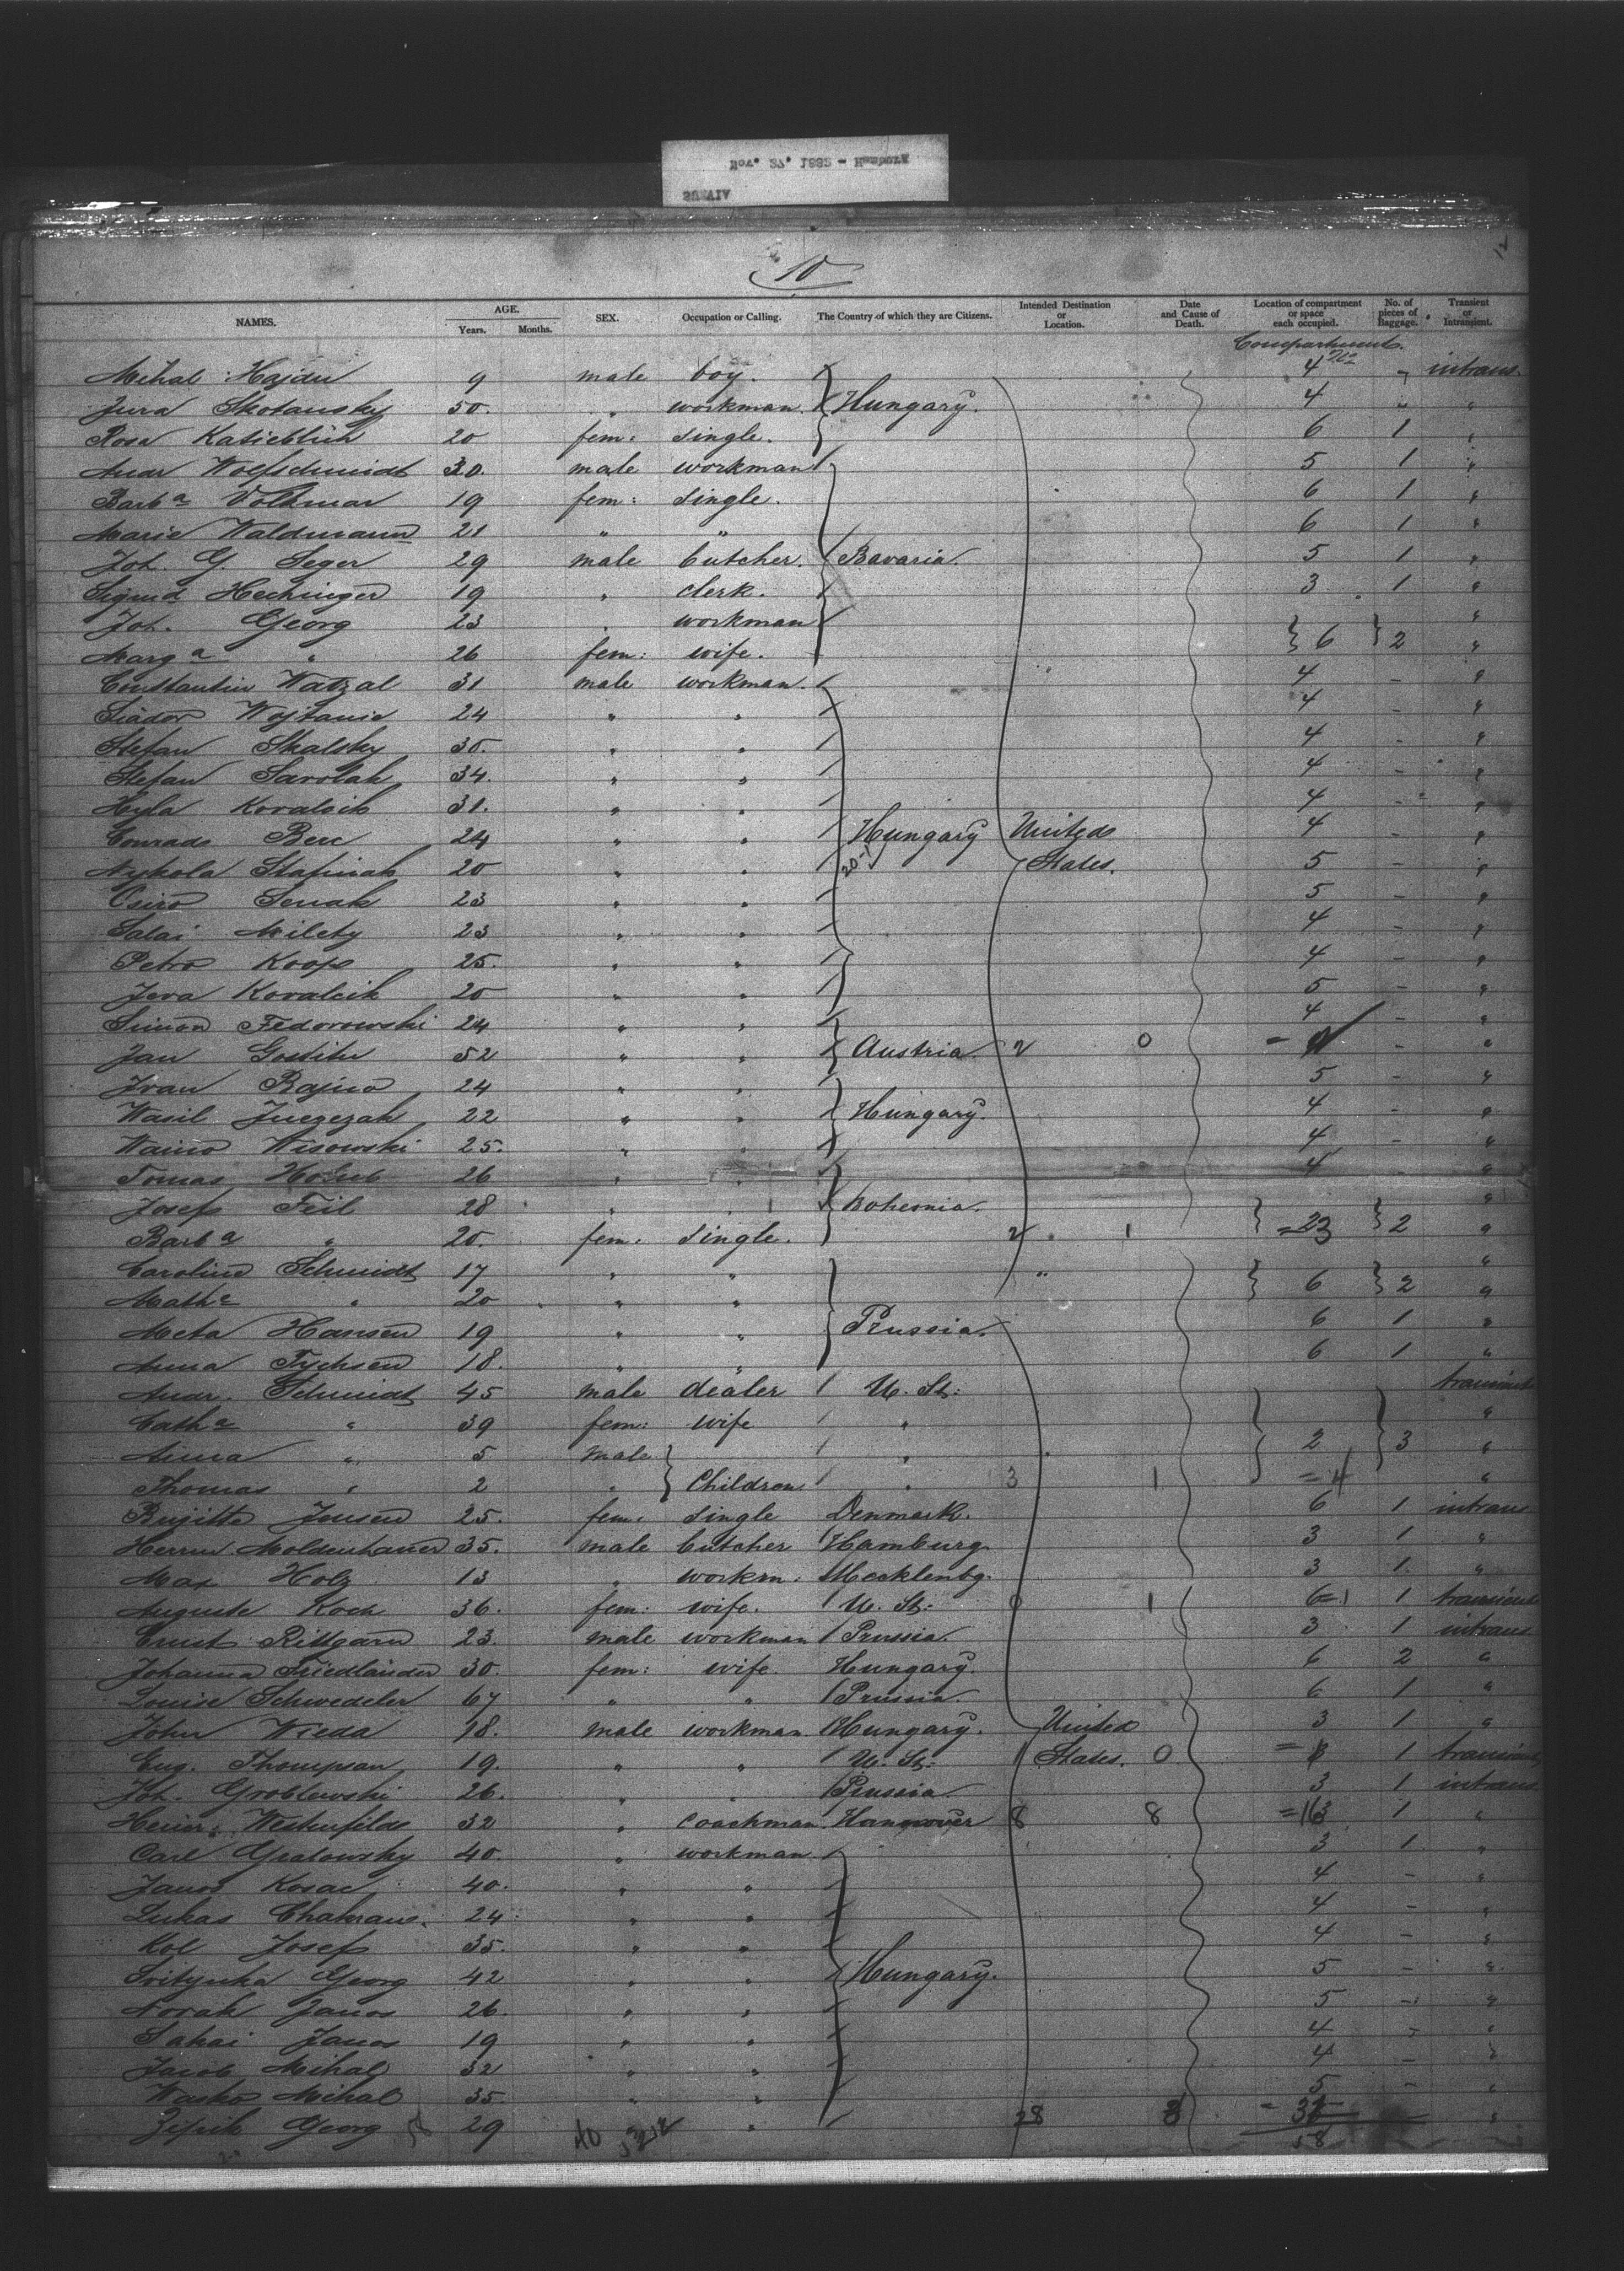 Nov. 27. 1885 - Hamburg
10
NAMES. AGE. Years. Months. SEX. Occupation or Calling. The Country of which they are Citizens. Intended Destination or Location. Date and Cause of Death. Location of compartment or space each occupied. No. of pieces of Baggage. Transient or Intransient.
Compartment.
Mihal Hajdu 9 male boy. 4 intrans.
Jura Skotansky 50. " workman Hungary. 4 "
Rosa 20 fem: single. 6 1 "
Andr Wolfschmidt 30. male workman 5 1 "
Barba Volkmar 19 fem: single. 6 1 "
Marie Waldmann 21 " " 6 1 "
Joh. G. Seger 29 male butcher. Bavaria. 5 1 "
Sigmd Hechinger 19 " clerk. 3 1 "
Joh. Georg 23 " workman "
Marga " 26 fem: wife. 6 2 "
Constantin Watzal 31 male workman. 4 - "
Wojtanic 24 " " 4 - "
Stefan Skalsky 30. " " 4 - "
Stefan Sarolak 34. " " 4 - "
Hyla Kovalcik 31. " " 4 - "
Conrad Berc 24 " " Hungary United 4 - "
Nykola Stafiniak 20 " " 20-1 States. 5 - "
Senak 23 " " 5 - "
Salai Milety 23 " " 4 - "
Petro Koop 25. " " 4 - "
Jova Kovalcik 20 " " 5 - "
Simon Fedorowski 24 " " 4 - "
Jan 52 " " Austria. 2 0 - "
Ivan Rajno 24 " " 5 - "
Wasil 22 " " Hungary. 4 - "
Wisowski 25. " " 4 - "
Tomas Holub 26 " " 4 - "
Josef Feil 28 " " Bohemia. "
Barba " 20. fem. single. 2 1 =23 2 "
Caroline Schmidt 17 " " "
Mathe " 20 " " 6 2 "
Meta Hansen 19 " " Prussia. 6 1 "
Anna Tychsen 18. " " 6 1 "
Andr. Schmidt 45 male dealer U. St: transient
Catha " 39 fem: wife " "
Anna " 5 male " 2 3 "
Thomas " 2 " Children " 3 1 =4 "
Brigitte Jensen 25. fem. single Denmark. 6 1 intrans
Herrm Moldenhauer 35. male butcher Hamburg. 3 1 "
Max Holz 13 " workm. Mecklenbg. 3 1 "
Auguste Koch 36. fem: wife. U. St: 0 1 6=1 1 transient
Ernst Rittgarn 23. male workman Prussia. 3 1 intrans
Johanna Friedländer 30. fem: wife. Hungary. 6 2 "
Louise Schwedeler 67 " " Prussia. 6 1 "
John Wieda 18. male workman Hungary. United 3 1 "
Eug. Thompson 19. " " U. St: States. 0 1 transient
Joh. Groblewski 26. " " Prussia 3 1 intrans
Heinr. Westenfelde 32 " coachman Hannover 8 8 =16 1 "
Carl Gratowsky 40. " workman 3 1 "
Janos Kosac 40. " " 4 - "
Lukas 24 " " 4 - "
Kol Josef 35. " " 4 - "
Georg 42 " " Hungary. 5 - "
Novak Janos 26. " " 5 - "
Sakai Janos 19 " " 4 - "
Jacob Mihal 32 " " 4 - "
Wasko Mihal 35. " " 5 - "
Georg 29 " 28 "
58